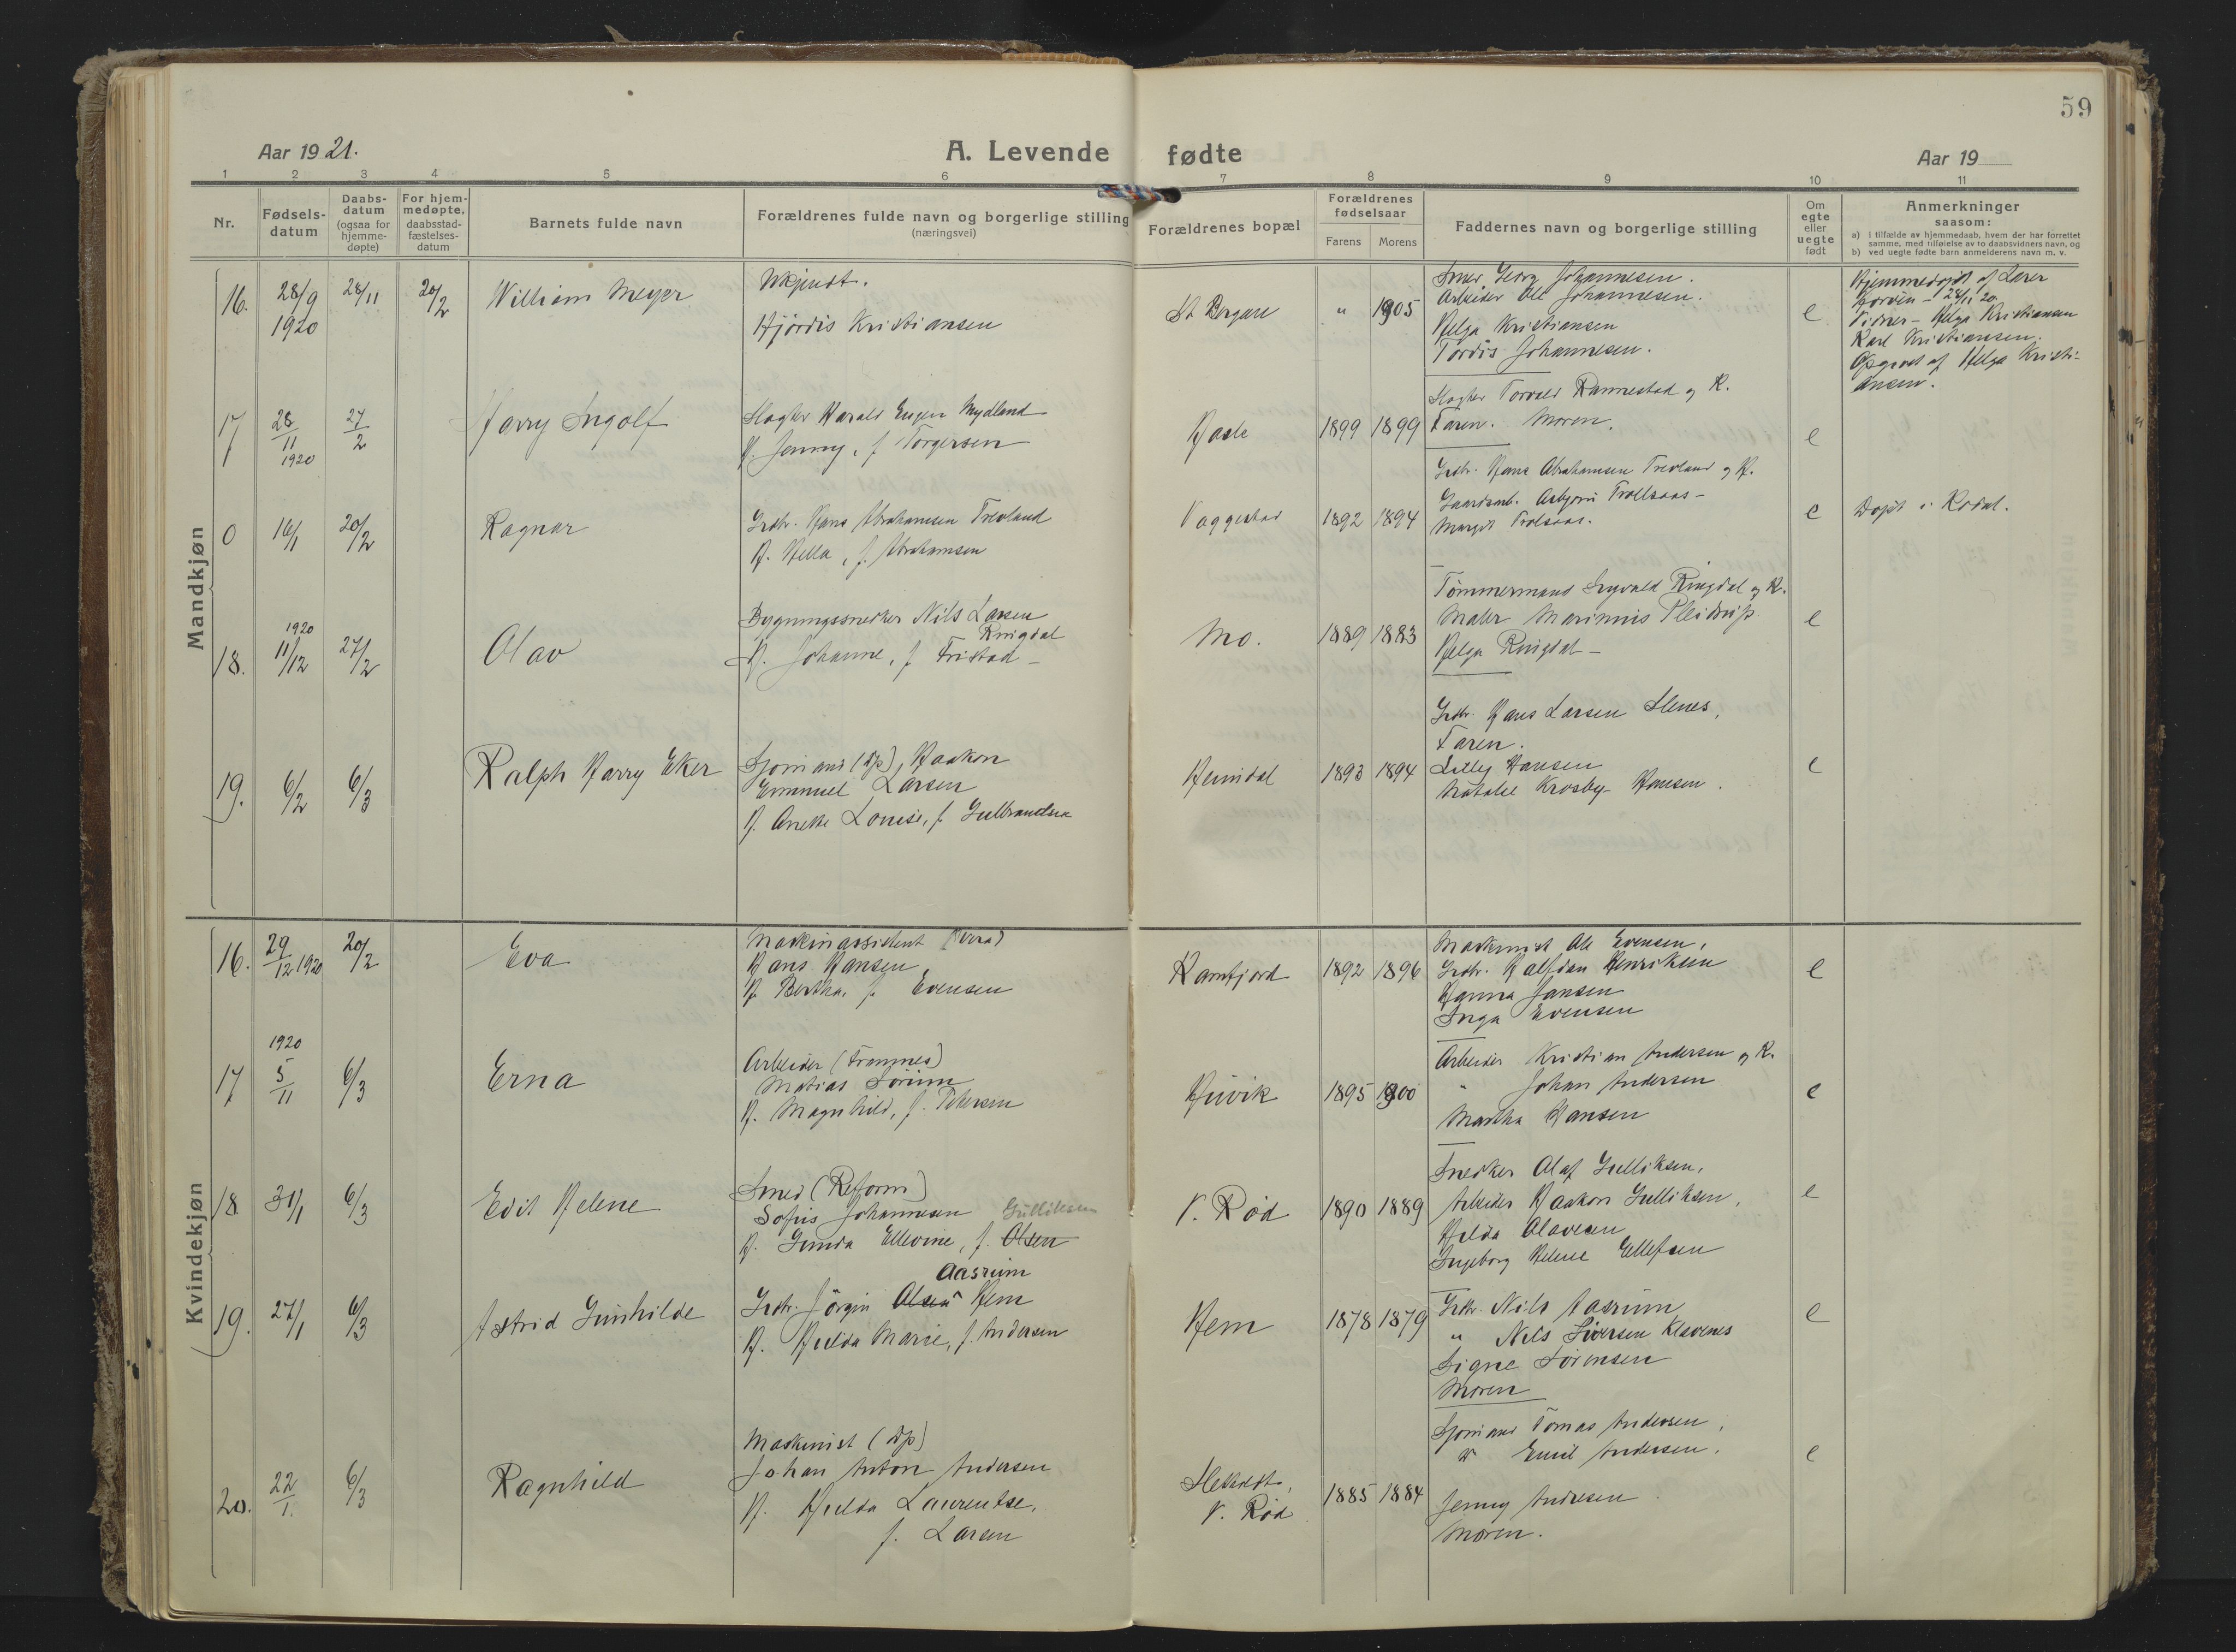 59
Aar 1921.
A. Levende fødte
Aar 19
1 2 3 4 5 6 7 8 9 10 11
Nr.
Fødsels-
datum
Daabs-
datum
(ogsaa for
hjemme-
døpte)
For hjem-
medøpte,
daabsstad-
fæstelses-
datum
Barnets fulde navn
Forældrenes fulde navn og borgerlige stilling
(næringsvei)
Forældrenes bopæl
Forældrenes
fødselsaar
Farens Morens
Faddernes navn og borgerlige stilling
Om
egte
eller
uegte
født
Anmerkninger
saasom:
a) i tilfælde av hjemmedaab, hvem der har forrettet
samme, med tilføielse av to daabsvidners navn, og
b) ved uegte fødte barn anmelderens navn m. v.
Mandkjøn
16. 28/9 1920 28/11 20/2 William Meyer
Ukjendt.
Hjördis Kristiansen
St. Bergare " 1905
Smed Georg Johannesen.
Arbeider Ole Johannesen.
Helga Kristiansen
Tordis Johannesen.
e
Hjemmedöpt af Lærer
28/11 20
Vidner - Helga Kristiansen
Karl Kristiansen.
Opgivet af Helga Kristi-
ansen.
17 28/11 1920 27/2 Harry Ingolf
Slagter Harald Eugen Mydland
H. Jenny, f. Torgersen
Hasle 1899 1899
Slagter Torvald Rannestad og K.
Faren. Moren.
e
0 16/1 20/2 Ragnar
Grdbr. Hans Abrahamsen Trevland
H. Hella, f. Abrahamsen
Vaggestad 1892 1894
Grdbr. Hans Abrahamsen Trevland og H.
Gaardarb. Asbjörn Trollsaas -
Margit Trolsaas.
e
Döpt i Kodal.
18. 1920 11/12 27/2 Olav
Bygningssnedker Nils Larsen
Ringdal
H. Johanne, f. Fristad -
Mo. 1889 1883
Tømmermand Sigvald Ringdal og K.
Maler Marinius
Helga Ringdal -
e
19. 6/2 6/3 Ralph Harry Eker
Sjömand (dp), Haakon
Emmuel Larsen
H. Anette Louise, f. Gulbrandsen
Heimdal 1893 1894
Grdbr. Hans Larsen Klenes,
Faren.
Lilly Hansen
Natalie Krosby Hansen.
e
Kvindekjøn
16. 29/12 1920 20/2 Eva
Maskinassistent
Hans Hansen
H. Bertha, f. Evensen
Ramfjord 1892 1896
Maskinist Ole Evensen,
Grdbr. Halfdan Henriksen
Hanna Jansen
Inga Evensen
e
17 1920 5/11 6/3 Erna
Arbeider (Framnes)
Matias Sörum
H. Magnhild, f. Petersen
Huvik 1895 1900
Arbeider Kristian Andersen og K.
" Johan Andersen
Martha Hansen
e
18 31/1 6/3 Edit Helene
Smed (Reform)
Sofus Johannesen Gulliksen
H. Gunda Ellevine, f. Olsen
V. Rød 1890 1889
Snedker Olaf Gulliksen,
Arbeider Haakon Gulliksen,
Hilda Olavesen
Ingeborg Helene Ellefsen
e
19. 27/1 6/3 Astrid Gunhilde
Aasrum
Grdbr. Jörgin Olsen Hem
H. Hulda Marie, f. Andersen
Hem 1878 1879
Grdbr. Nils Aasrum
" Nils Siversen Klavenes
Signe Sörensen
Moren
e
20. 22/1. 6/3 Ragnhild
Maskinist (dp)
Johan Anton Andersen
H. Hulda Laurentse,
f. Larsen
V. Rød 1885 1884
Sjömand Tomas Andersen,
" Emil Andersen.
Jenny Andresen
Moren.
e